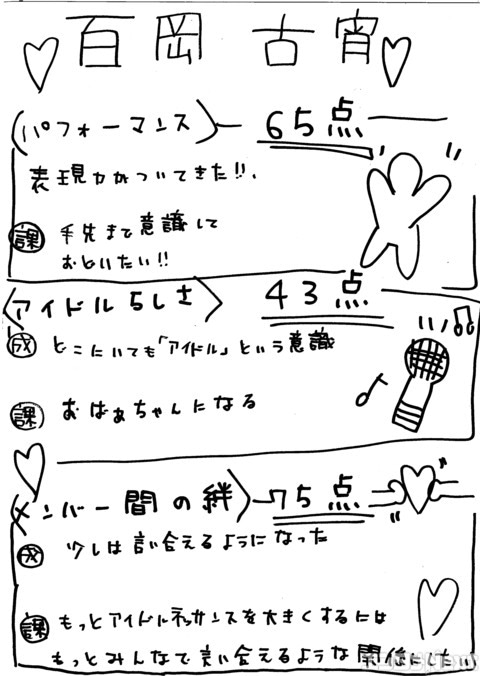 百岡 古宵
〈パフォーマンス〉 65点
表現力がついてきた!!、
課 手先まで意識して
おどりたい!!
〈アイドルらしさ〉 43点
成 どこにいても「アイドル」という意識
課 おばあちゃんになる
〈メンバー間の絆〉 75点
成 少しは言い合えるようになった
課 もっとアイドルネッサンスを大きくするには
もっとみんなで言い合えるような関係にしたい